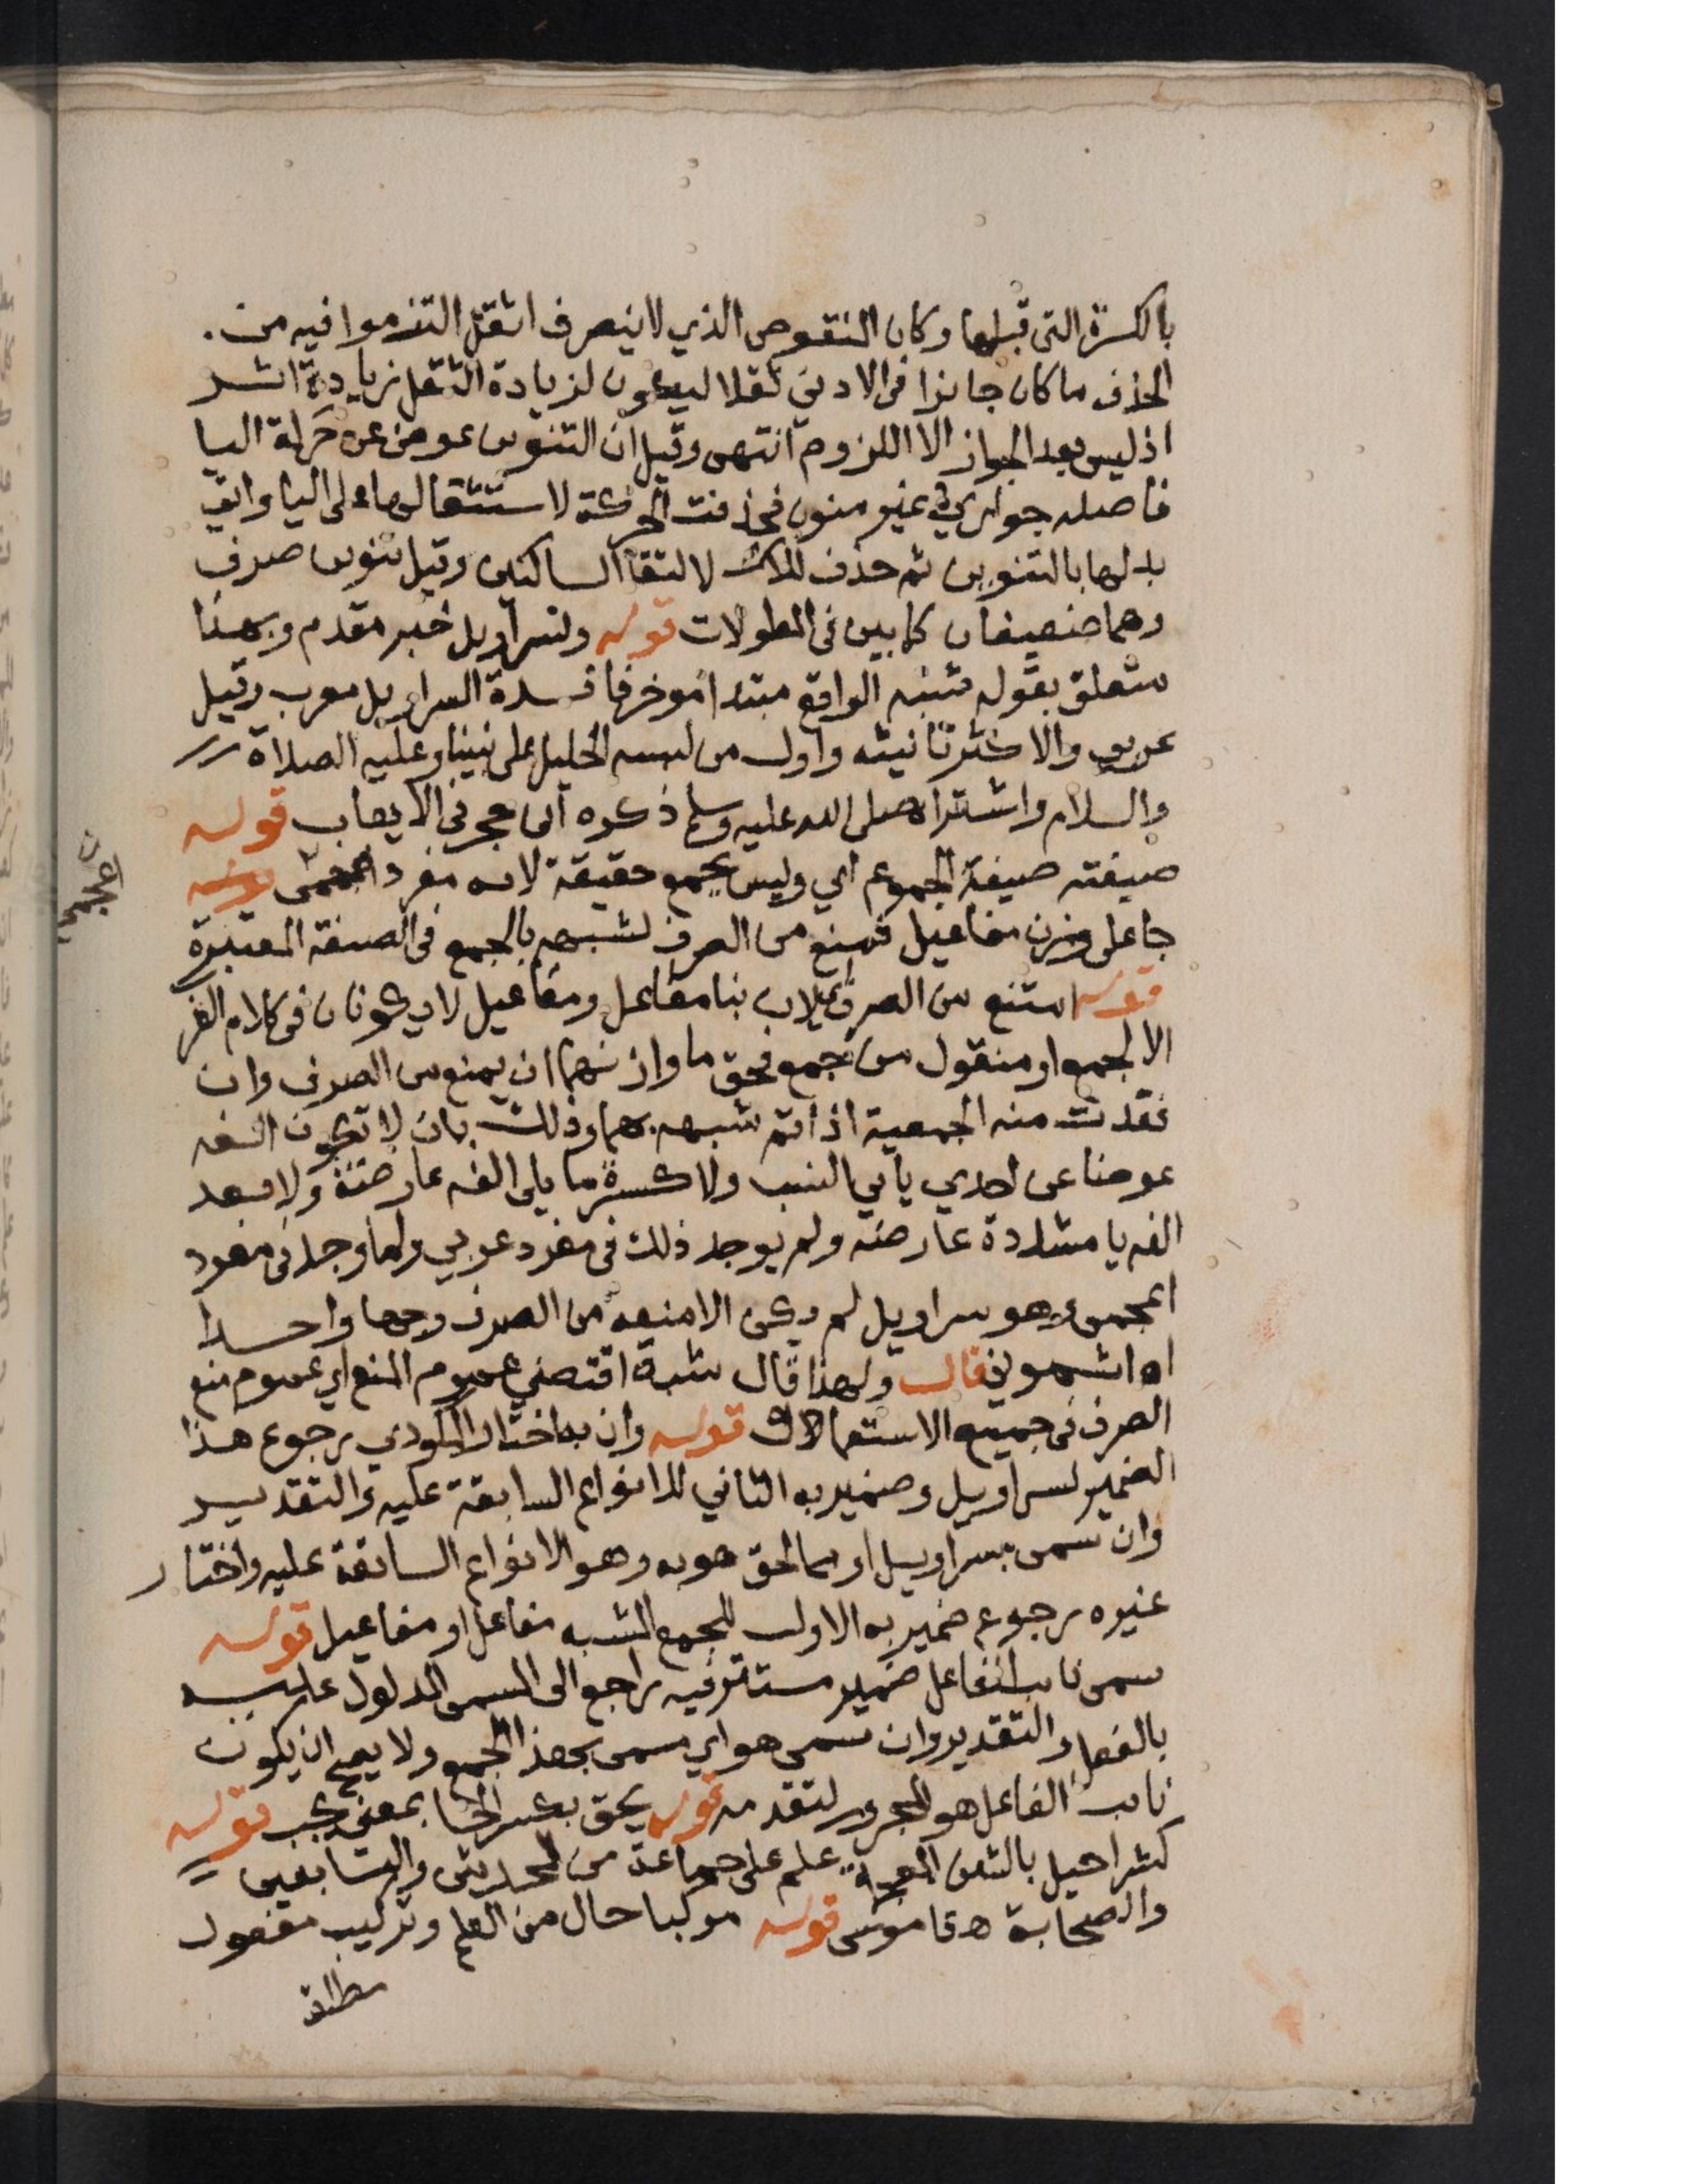 بالكسرة التى قبلها وكان المنقوص الذي لاينصرف اثقل التزموا فيه من.
الحذف ما كان جائزا فى الادنى ثقلا ليكون لزيادة الثقل زيادة اثر
اذ ليس بعد الجواز الا اللزوم انتهى وقيل ان التنوين عوض عن حركة اليا
فاصله جواري غير منون فحذفت الحركة لاستثقالها على اليا واتى
بدلها بالتنوين ثم حذف لالتقا الساكنين وقيل تنوين صرف
وهما ضعيفان كما بين فى المطولات قوله ولسراويل خبر مقدم وبهذا
متعلق بقوله شبه الواقع مبتدا موخرفائدة السراويل معرب وقيل
عربى والاكثر تانيثه واول من لبسه الخليل على نبينا وعليه الصلاة
والسلام واشتراه صلى الله عليه وسلم ذكره ابن حجر فى الايعاب قوله
صيغته صيغة الجموع اي وليس بجمع حقيقة لانه مفرد اعجمى قوله
جا على وزن مفاعيل فمنع من الصرف لشبهه بالجمع فى الصيغة المعتبرة
قوله امتنع من الصرف لان بنا مفاعل ومفاعيل لا يكونان فى كلام العرب
الا لجمع او منقول من جمع فحق ما وازنهما ان يمنع من الصرف وان
فقدت منه الجمعية اذا تم شبهه بهما وذلك بان لا تكون الفه
عوضا عن احدي يائي النسب ولا كسرة ما يلى الفه عارضة ولا بعد
الفه يا مشددة عارضه ولم يوجد ذلك فى مفرد عربي ولما وجد فى مفرد
اعجمى وهو سراويل لم يكن الا منعه من الصرف وجها واحدا
اه اشمونى قال ولهذا قال شبه اقتضي عموم المنع اي عموم منع
الصرف فى جميع الاستعمالات قوله وان به اختار المكودي رجوع هذا
الضمير لسراويل وضمير به الثاني للانواع السابقة عليه والتقدير
وان سمى بسراويل او بما لحق هو به وهو الانواع السابقة عليه واختار
غيره رجوع ضمير به الاول للجمع المشبه مفاعل او مفاعيل قوله
سمى نائب الفاعل ضمير مستتر فيه راجع الى المسمى المدلول عليه
بالفعل والتقدير وان سمى هو اي مسمى بهذا الجمع ولا يصح ان يكون
نائب الفاعل هو المجرور لتقدمه قوله يحق بكسر الحا بمعنى يجب قوله
كشراحيل بالشين المعجمة علم على جماعة من المحدثين والتابعين
والصحابة اه قاموس قوله مركبا حال من العلم وتركيب مفعول
مطلق